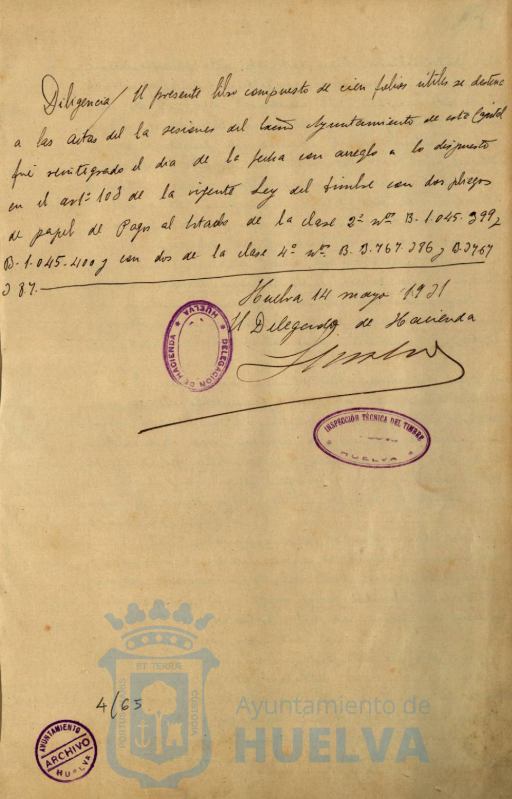 Diligencia/ El presente libro compuesto de cien folios útiles se destina
a las actas del la sesiones del Excmo Ayuntamiento de esta Capital
fué reintegrado el dia de la fecha con arreglo a lo dispuesto
en el artº 108 de la vigente Ley del timbre con dos pliegos
de papel de Pagos al Estado de la clase 2ª nºs B. 1.045.399 y
B. 1.045.400 y con dos de la clase 4ª nºs B. 3.767.386 y B.3767
387.
Huelva 14 mayo 1931
El Delegado de Hacienda
DELEGACION DE HACIENDA
HUELVA
INSPECCIÓN TÉCNICA DEL TIMBRE
HUELVA
4/65
AYUNTAMIENTO
ARCHIVO
HUELVA
PORTUS MARIS
ET TERRÆ
CUSTODIA
Ayuntamiento de
HUELVA